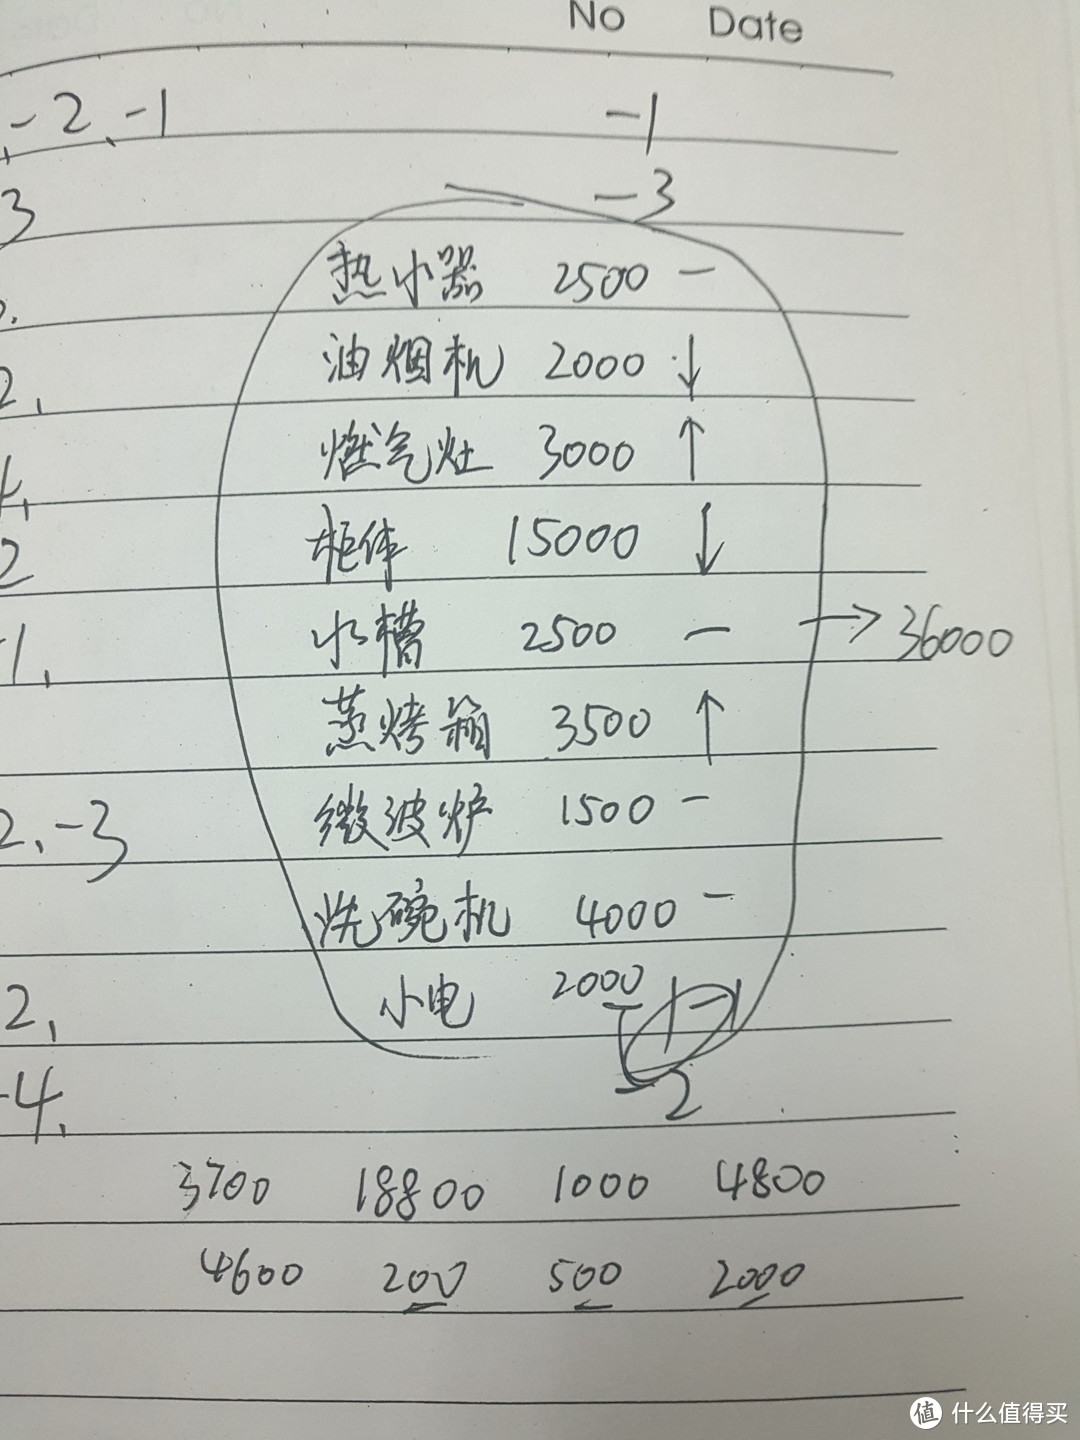 No Date
-2、-1 -1
3 -3
热水器 2500 -
油烟机 2000 ↓
2、
燃气灶 3000 ↑
柜体 15000 ↓
2
-1、
水槽 2500 - → 36000
蒸烤箱 3500 ↑
2、-3
微波炉 1500 -
洗碗机 4000 -
2、
小电 2000
-4、
-2
3700 18800 1000 4800
4600 200 500 2000
值 什么值得买